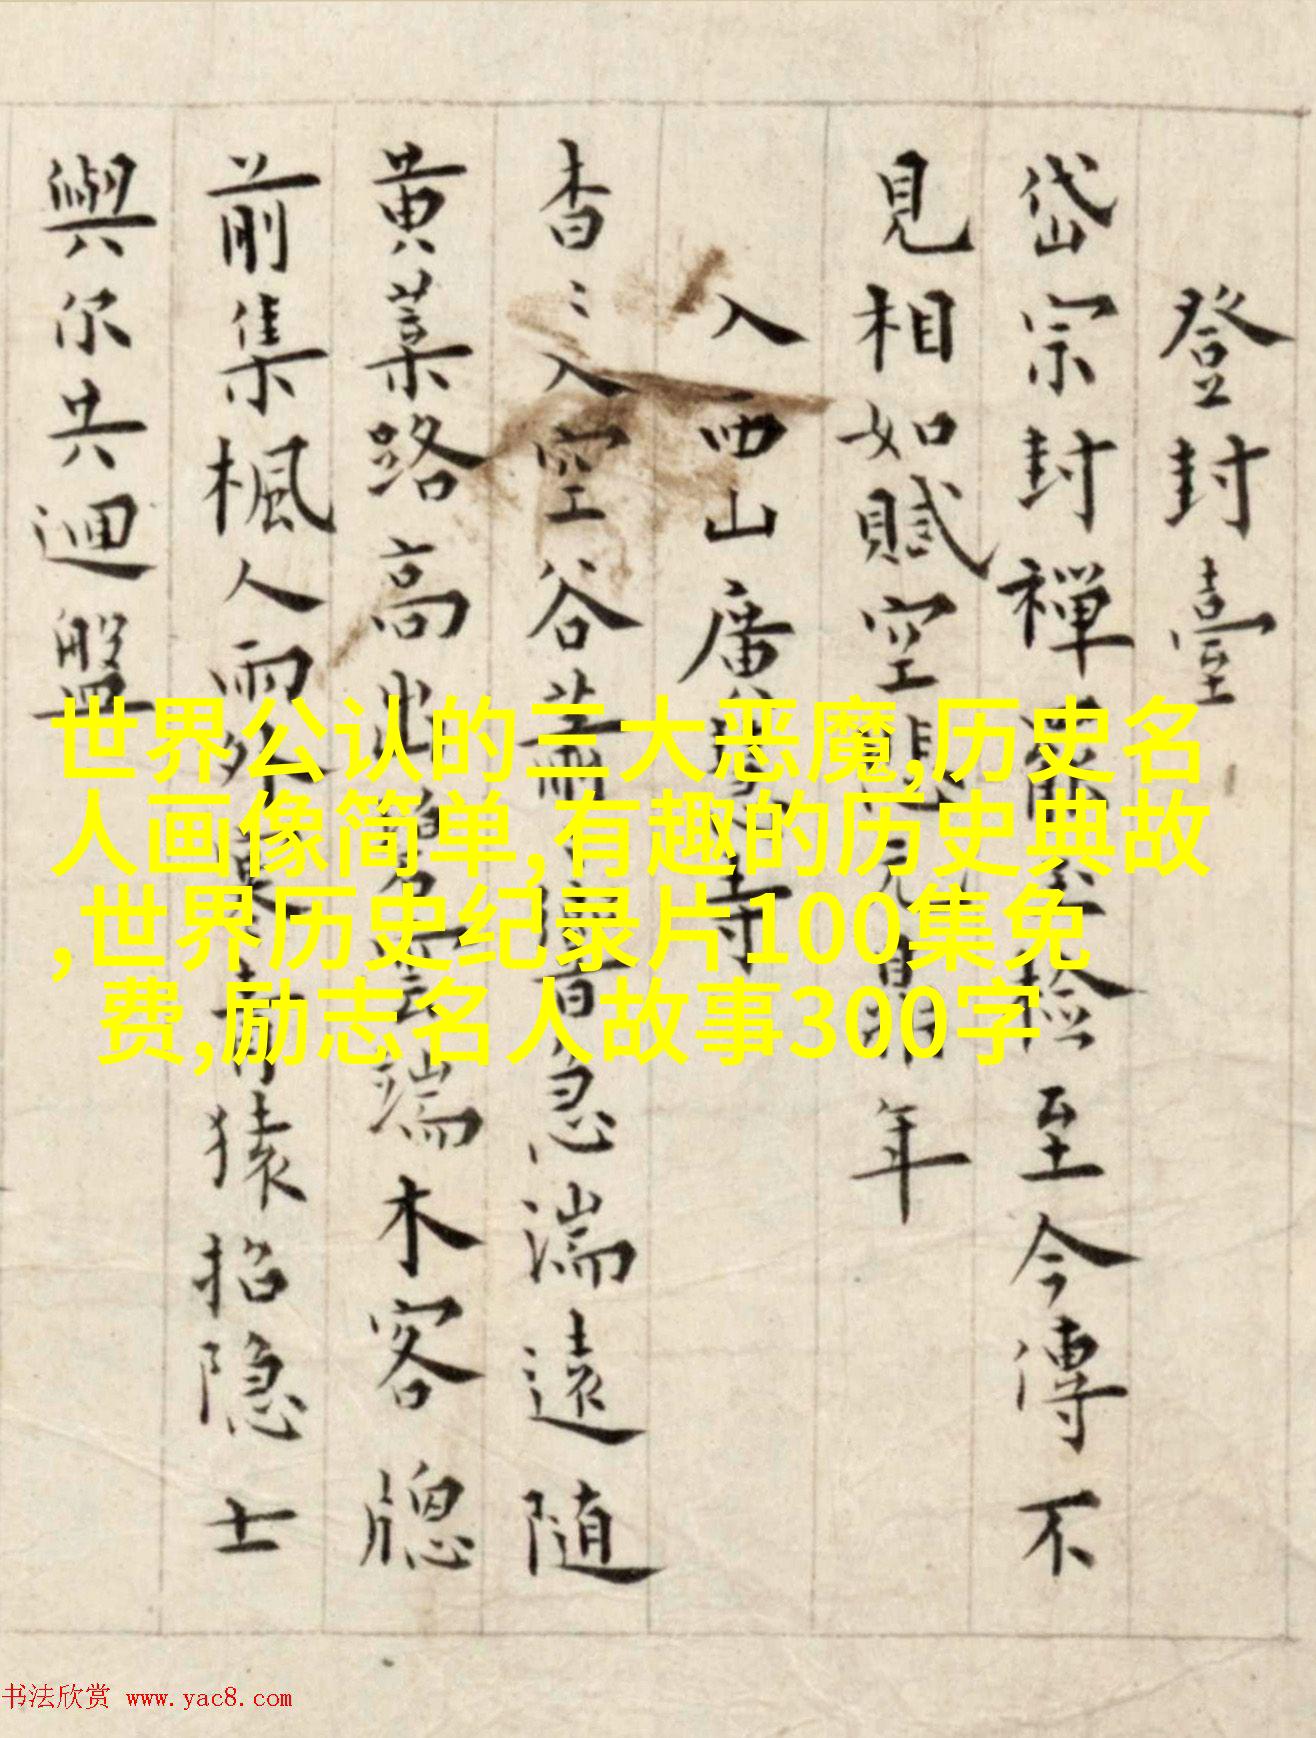 登封臺
岱宗封禪至今傳不
見相如賦空元年
入西山廣寺
杳〻入空谷音急湍遠随
黄葉路高雲端木客牕
前集楓人雨外猿招隐士
與尔共迴盤
世界公认的三大恶魔,历史名
人画像简单,有趣的历史典故
,世界历史纪录片100集免
费,励志名人故事300字
书法欣赏 www.yac8.com